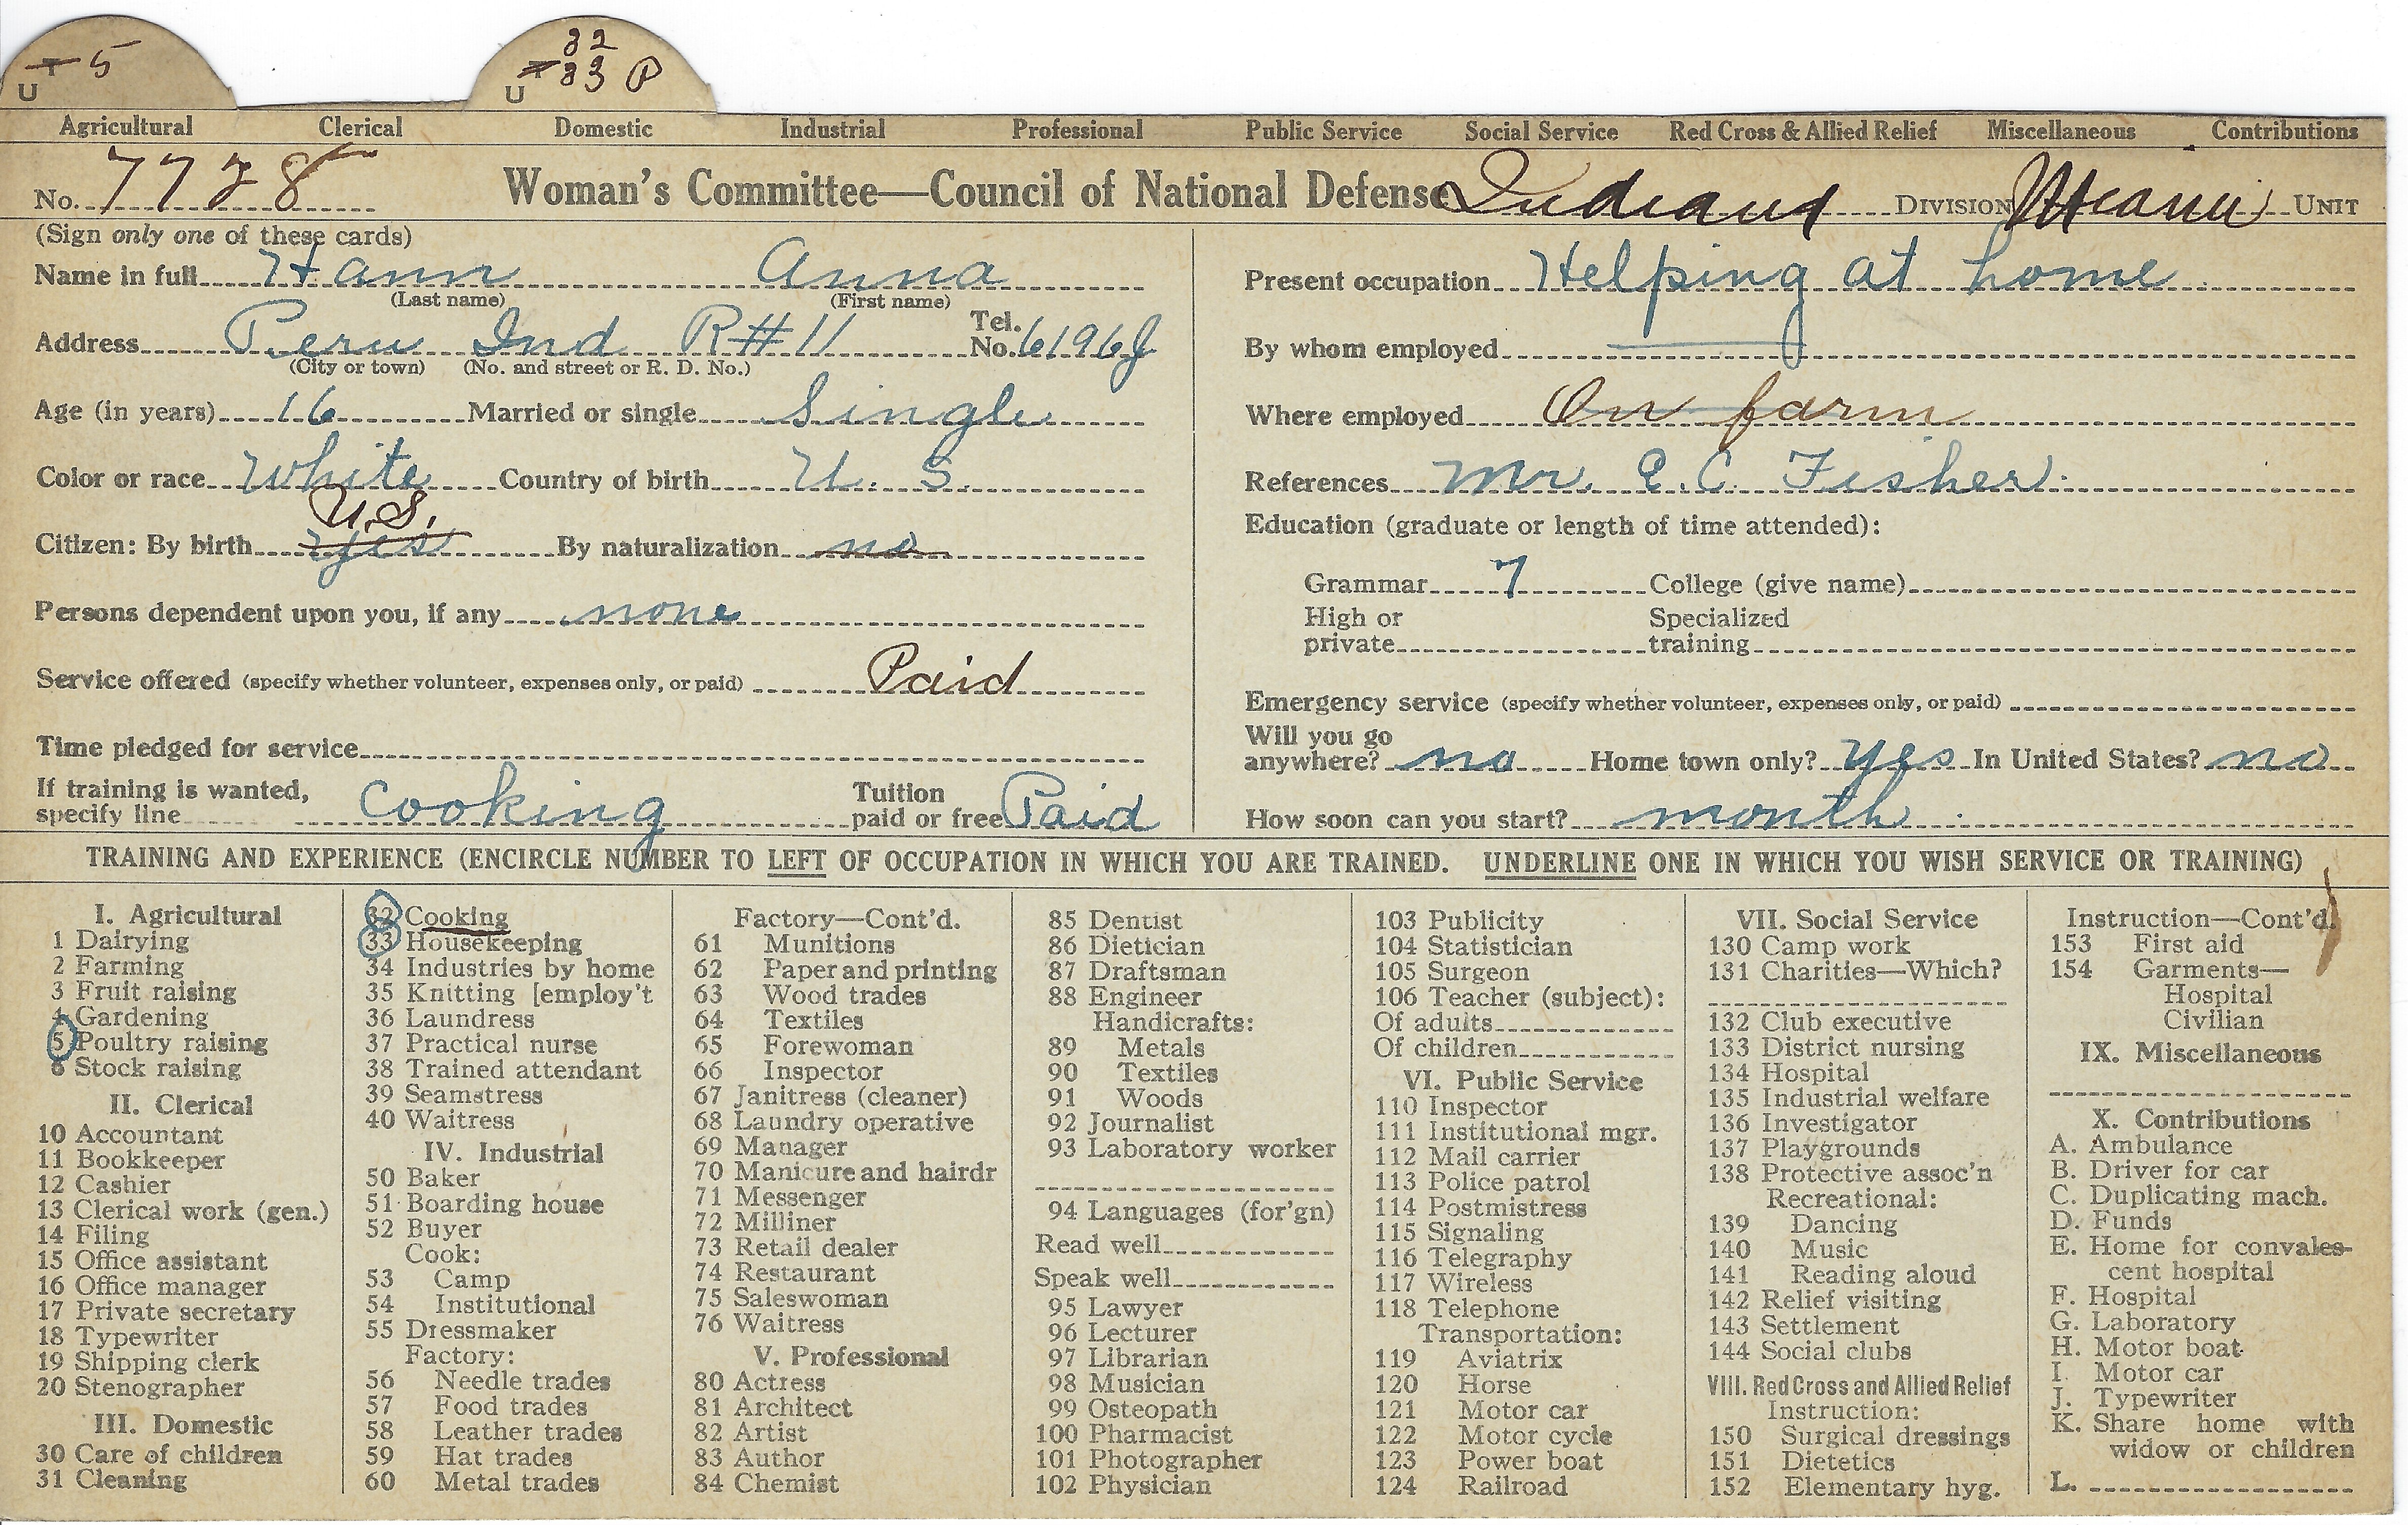 T 5 U
T 32 33 P U
Agricultural Clerical Domestic Industrial Professional Public Service Social Service Red Cross & Allied Relief Miscellaneous Contributions
No. 7728 Woman's Committee—Council of National Defense Indiana DIVISION Miami UNIT
(Sign only one of these cards)
Name in full Hann Anna
(Last name) (First name)
Address Peru Ind R#11 Tel. No. 6196J
(City or town) (No. and street or R. D. No.)
Age (in years) 16 Married or single Single
Color or race White Country of birth U. S.
U.S.
Citizen: By birth yes By naturalization no
Persons dependent upon you, if any none
Service offered (specify whether volunteer, expenses only, or paid) Paid
Time pledged for service
If training is wanted, specify line Cooking Tuition paid or free Paid
Present occupation Helping at home
By whom employed
Where employed On farm
References Mr. E. C. Fisher.
Education (graduate or length of time attended):
Grammar 7 College (give name)
High or private Specialized training
Emergency service (specify whether volunteer, expenses only, or paid)
Will you go anywhere? no Home town only? yes In United States? no
How soon can you start? month
TRAINING AND EXPERIENCE (ENCIRCLE NUMBER TO LEFT OF OCCUPATION IN WHICH YOU ARE TRAINED. UNDERLINE ONE IN WHICH YOU WISH SERVICE OR TRAINING)
I. Agricultural
1 Dairying
2 Farming
3 Fruit raising
4 Gardening
5 Poultry raising
6 Stock raising
II. Clerical
10 Accountant
11 Bookkeeper
12 Cashier
13 Clerical work (gen.)
14 Filing
15 Office assistant
16 Office manager
17 Private secretary
18 Typewriter
19 Shipping clerk
20 Stenographer
III. Domestic
30 Care of children
31 Cleaning
32 Cooking
33 Housekeeping
34 Industries by home
35 Knitting [employ't
36 Laundress
37 Practical nurse
38 Trained attendant
39 Seamstress
40 Waitress
IV. Industrial
50 Baker
51 Boarding house
52 Buyer
Cook:
53 Camp
54 Institutional
55 Dressmaker
Factory:
56 Needle trades
57 Food trades
58 Leather trades
59 Hat trades
60 Metal trades
Factory—Cont'd.
61 Munitions
62 Paper and printing
63 Wood trades
64 Textiles
65 Forewoman
66 Inspector
67 Janitress (cleaner)
68 Laundry operative
69 Manager
70 Manicure and hairdr
71 Messenger
72 Milliner
73 Retail dealer
74 Restaurant
75 Saleswoman
76 Waitress
V. Professional
80 Actress
81 Architect
82 Artist
83 Author
84 Chemist
85 Dentist
86 Dietician
87 Draftsman
88 Engineer
Handicrafts:
89 Metals
90 Textiles
91 Woods
92 Journalist
93 Laboratory worker
94 Languages (for'gn)
Read well
Speak well
95 Lawyer
96 Lecturer
97 Librarian
98 Musician
99 Osteopath
100 Pharmacist
101 Photographer
102 Physician
103 Publicity
104 Statistician
105 Surgeon
106 Teacher (subject):
Of adults
Of children
VI. Public Service
110 Inspector
111 Institutional mgr.
112 Mail carrier
113 Police patrol
114 Postmistress
115 Signaling
116 Telegraphy
117 Wireless
118 Telephone
Transportation:
119 Aviatrix
120 Horse
121 Motor car
122 Motor cycle
123 Power boat
124 Railroad
VII. Social Service
130 Camp work
131 Charities—Which?
132 Club executive
133 District nursing
134 Hospital
135 Industrial welfare
136 Investigator
137 Playgrounds
138 Protective assoc'n
Recreational:
139 Dancing
140 Music
141 Reading aloud
142 Relief visiting
143 Settlement
144 Social clubs
VIII. Red Cross and Allied Relief
Instruction:
150 Surgical dressings
151 Dietetics
152 Elementary hyg.
Instruction—Cont'd.
153 First aid
154 Garments—
Hospital
Civilian
IX. Miscellaneous
X. Contributions
A. Ambulance
B. Driver for car
C. Duplicating mach.
D. Funds
E. Home for convales-
cent hospital
F. Hospital
G. Laboratory
H. Motor boat
I. Motor car
J. Typewriter
K. Share home with
widow or children
L.